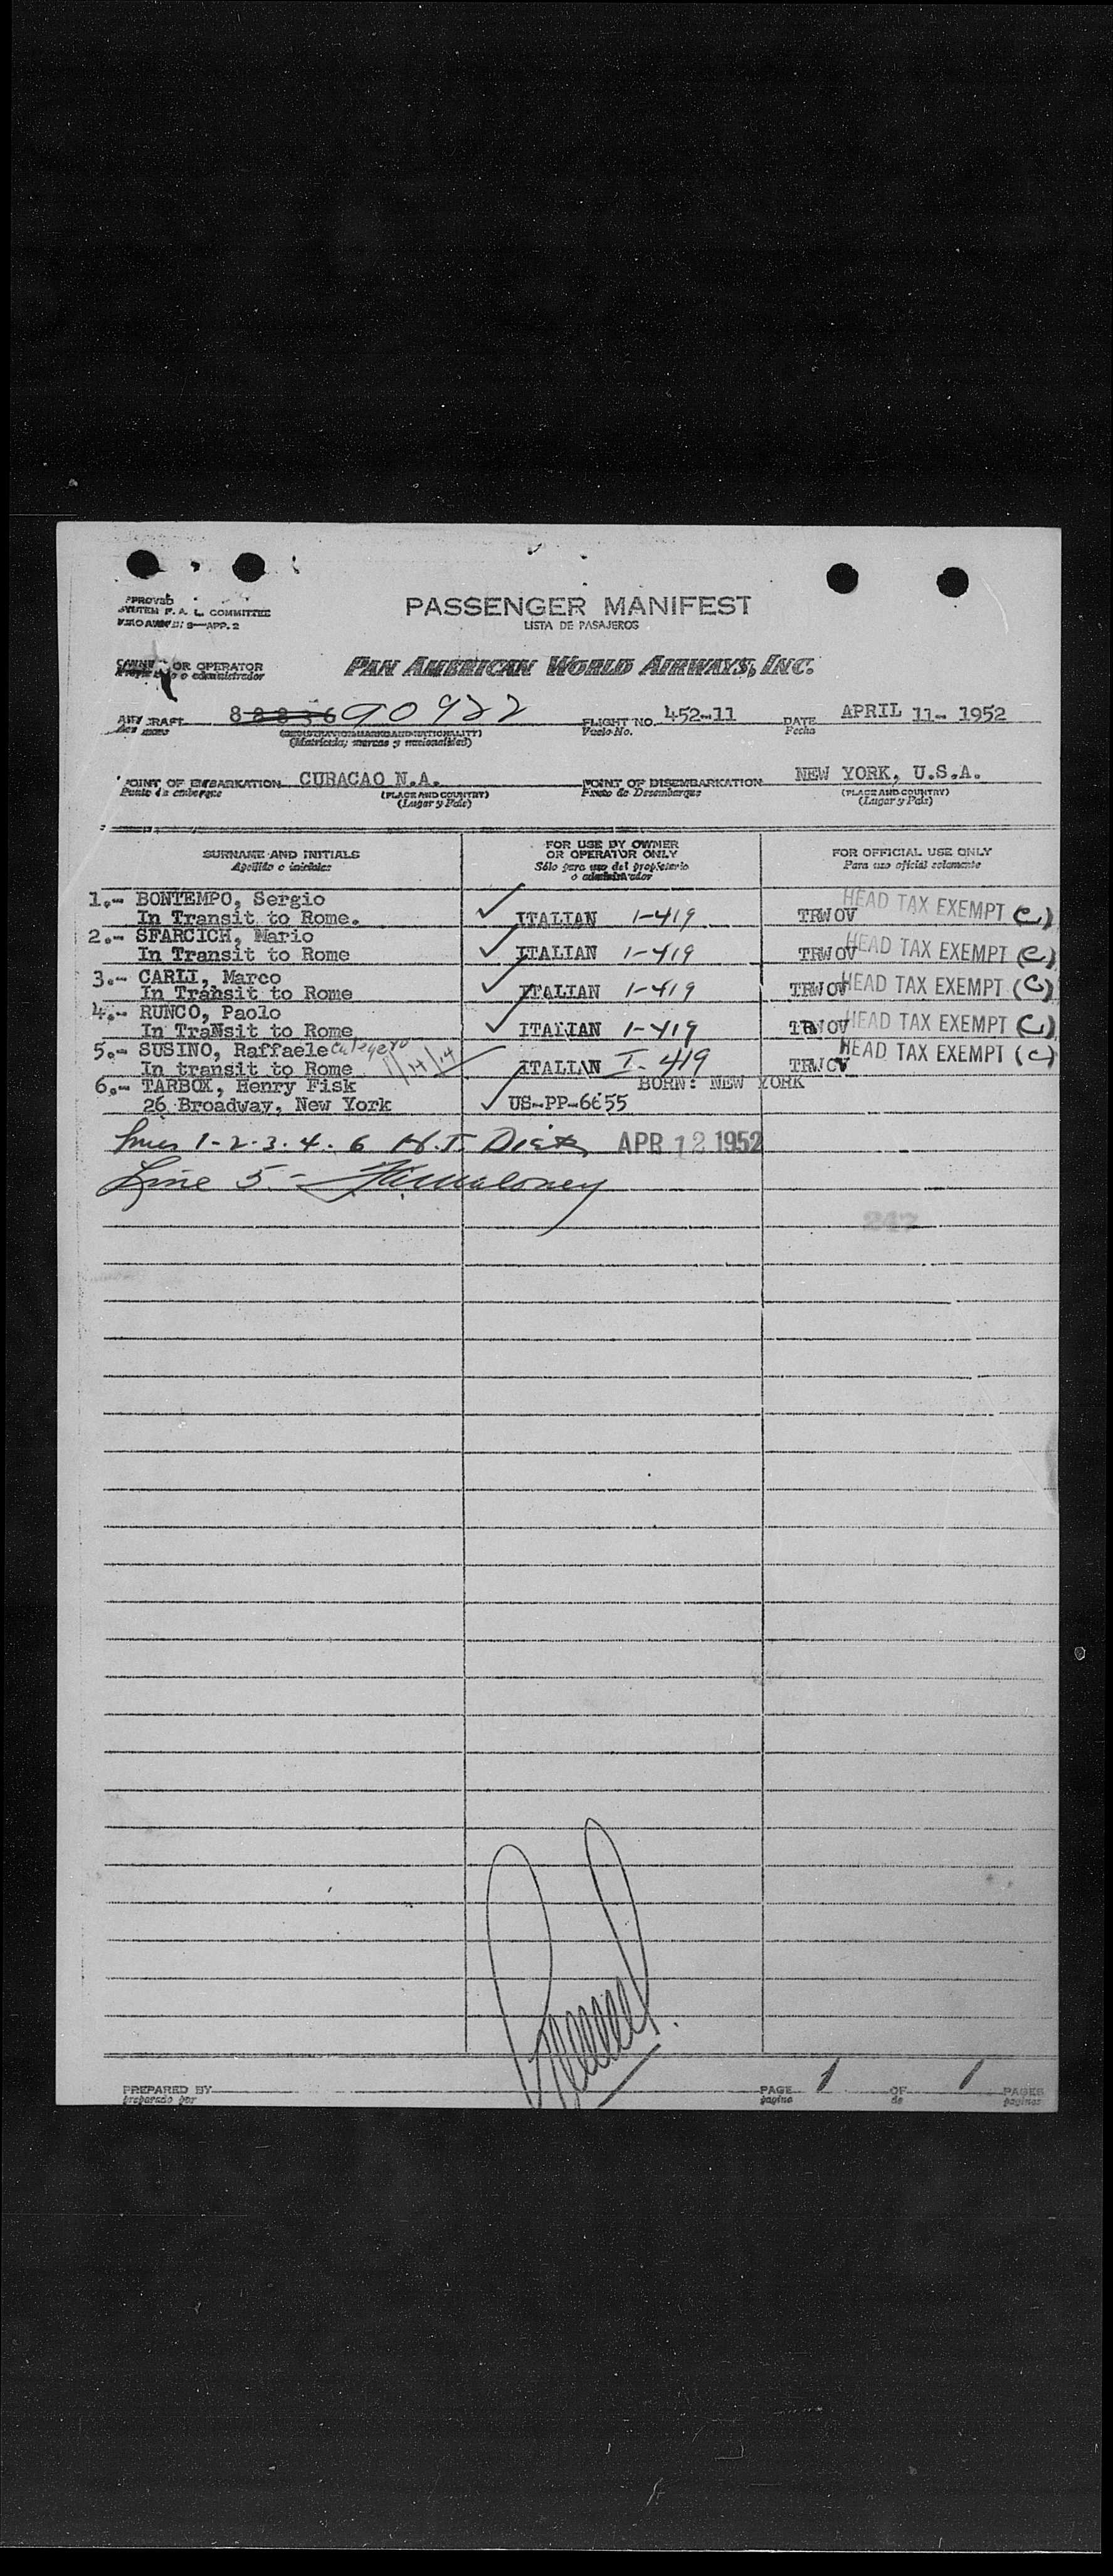 PASSENGER MANIFEST
LISTA DE PASAJEROS
SYSTEM F. A. L. COMMITTEE
9—APP. 2
OR OPERATOR
o administrador
PAN AMERICAN WORLD AIRWAYS, INC.
88836 90922
FLIGHT NO. 452-11
Vuelo No.
DATE APRIL 11- 1952
Fecha
(Matricula; marcas y nacionalidad)
POINT OF EMBARKATION CURACAO N.A.
Punto de embarque
(PLACE AND COUNTRY)
(Lugar y País)
POINT OF DISEMBARKATION NEW YORK, U.S.A.
Punto de Desembarque
(PLACE AND COUNTRY)
(Lugar y País)
SURNAME AND INITIALS
Apellido e iniciales
FOR USE BY OWNER
OR OPERATOR ONLY
Sólo para uso del propietario
o administrador
FOR OFFICIAL USE ONLY
Para uso oficial solamente
1.- BONTEMPO, Sergio HEAD TAX EXEMPT (C)
In Transit to Rome. ITALIAN 1-419 TRWOV
2.- SFARCICH, Mario HEAD TAX EXEMPT (C)
In Transit to Rome ITALIAN 1-419 TRWOV
3.- CARLI, Marco HEAD TAX EXEMPT (C)
In Transit to Rome ITALIAN 1-419 TRWOV
4.- RUNCO, Paolo HEAD TAX EXEMPT (C)
In TraNsit to Rome ITALIAN 1-419 TRWOV
5.- SUSINO, Raffaele HEAD TAX EXEMPT (C)
In transit to Rome ITALIAN I-419 TRWOV
6.- TARBOX, Henry Fisk BORN: NEW YORK
26 Broadway, New York US-PP-6655
Lines 1-2-3-4-6 H.J. APR 12 1952
Line 5- Maloney
247
PREPARED BY
preparado por
PAGE 1 OF 1 PAGES
pagina de paginas